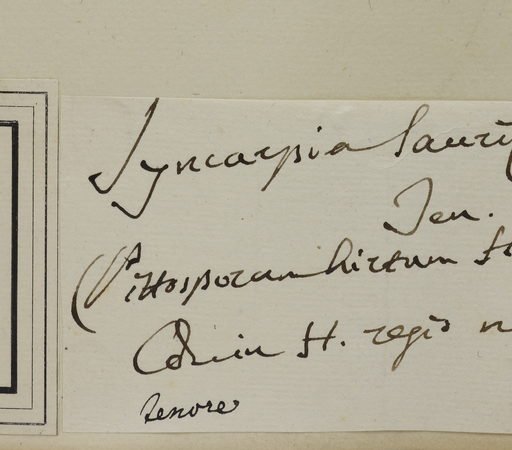 Syncarpia lauri
Ten.
(Pittosporum hirtum H
H. regis n
Tenore